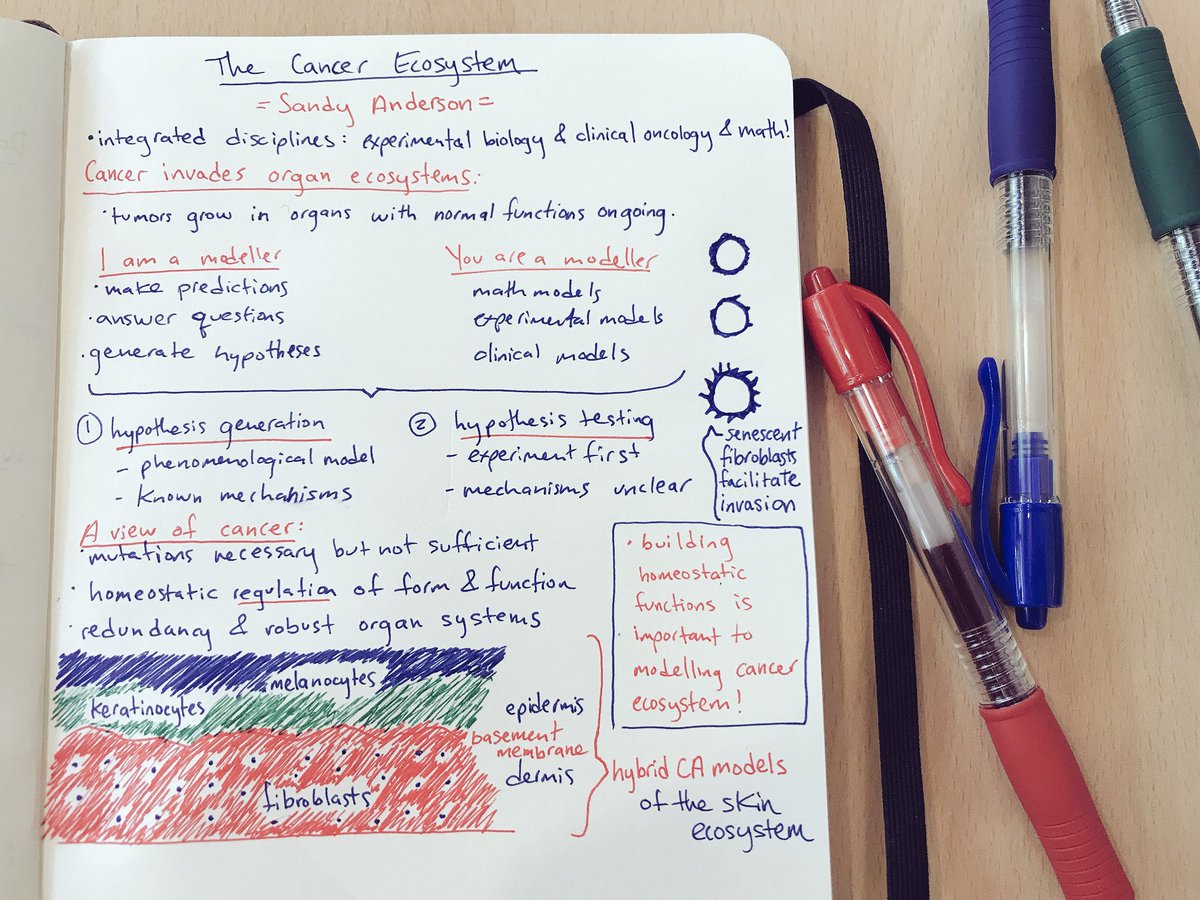 The Cancer Ecosystem
= Sandy Anderson =
• integrated disciplines: experimental biology & clinical oncology & math!
Cancer invades organ ecosystems:
• tumors grow in organs with normal functions ongoing.
I am a modeller
• make predictions
• answer questions
• generate hypotheses
You are a modeller
math models
experimental models
clinical models
① hypothesis generation
- phenomenological model
- known mechanisms
② hypothesis testing
- experiment first
- mechanisms unclear
senescent
fibroblasts
facilitate
invasion
A view of cancer:
• mutations necessary but not sufficient
• homeostatic regulation of form & function
• redundancy & robust organ systems
• building
homeostatic
functions is
important to
modelling cancer
ecosystem!
melanocytes
keratinocytes
fibroblasts
epidermis
basement
membrane
dermis
hybrid CA models
of the skin
ecosystem